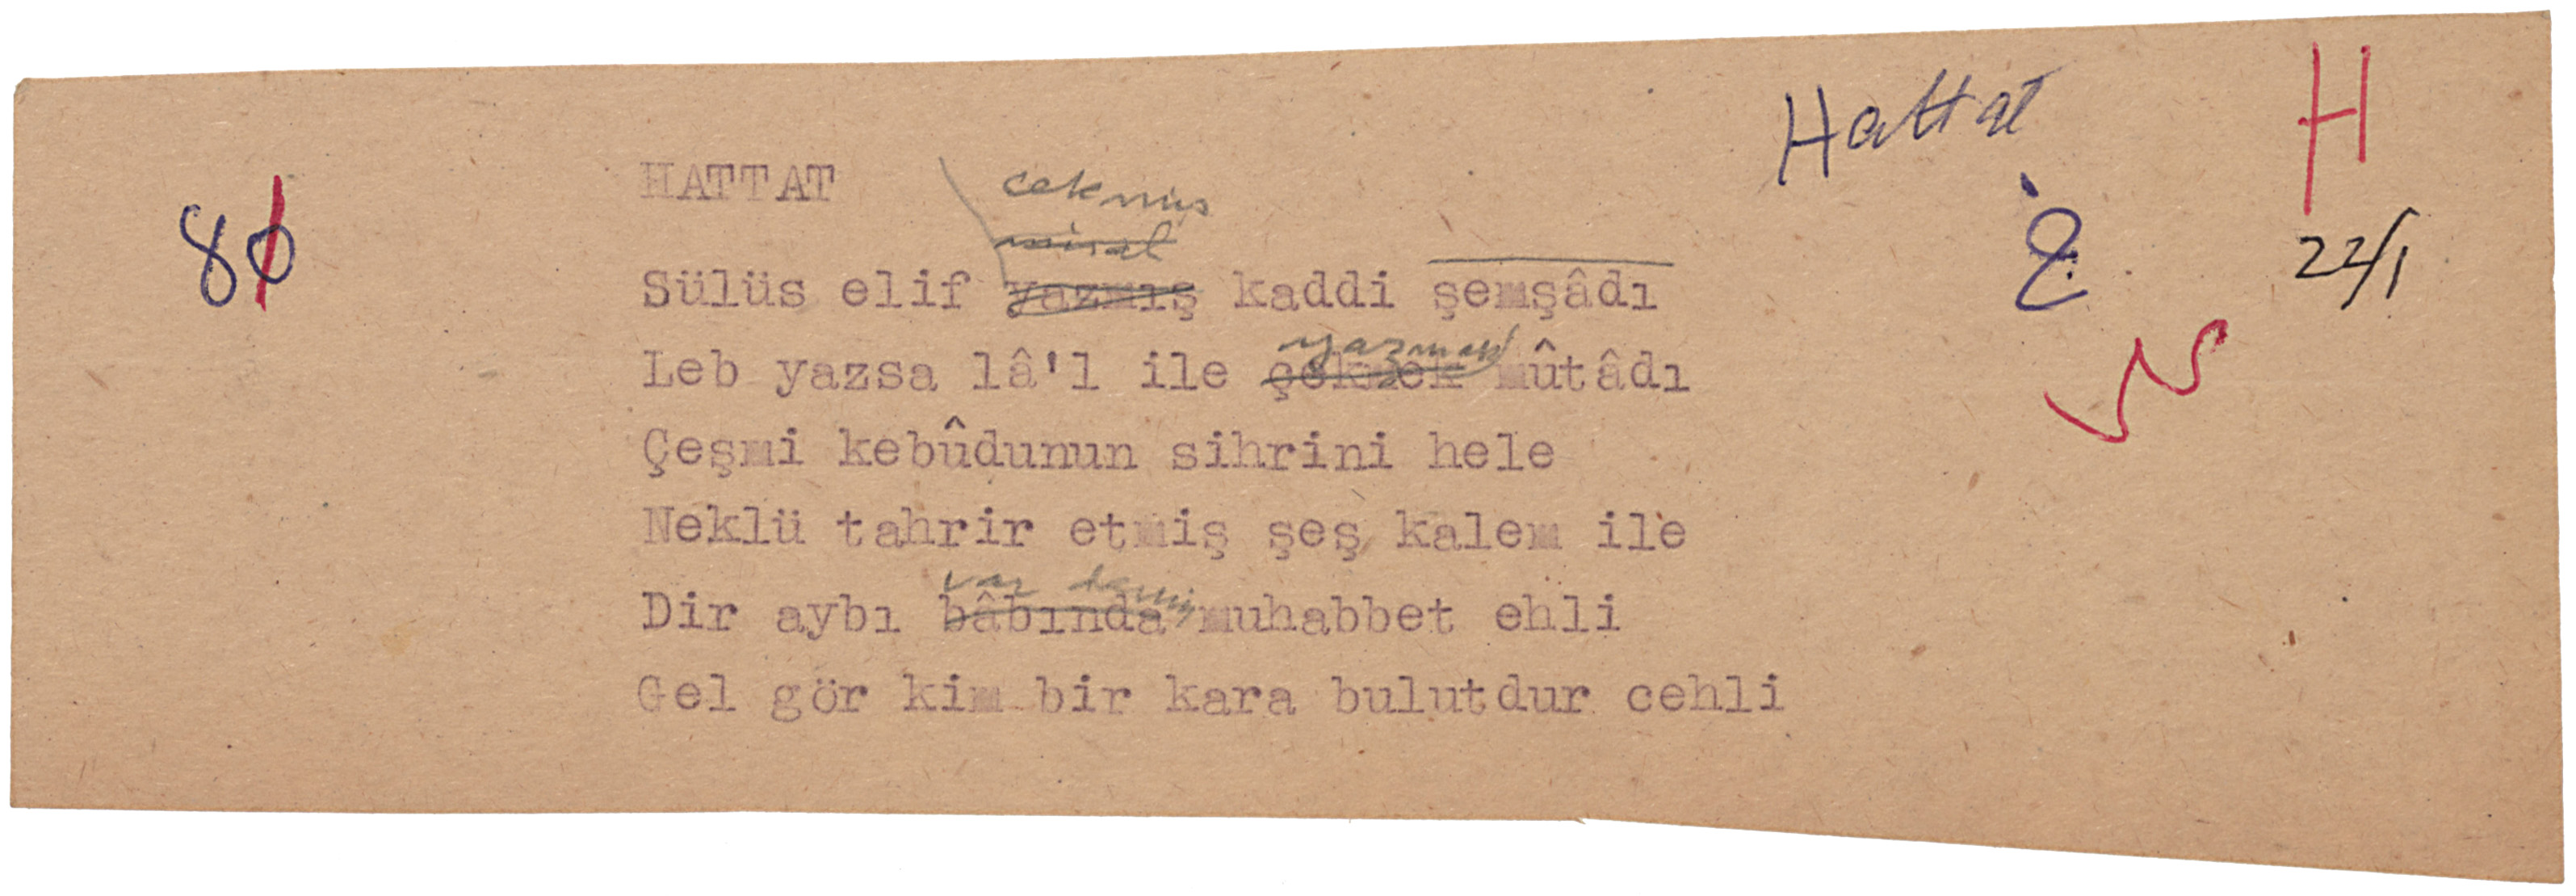 Hattat
H
HATTAT
çekmiş
misal
80
22/1
Sülüs elif yazmış kaddi şemşâdı
yazmak
Leb yazsa lâ'l ile çekmek mûtâdı
Çeşmi kebûdunun sihrini hele
Neklü tahrir etmiş şeş kalem ile
var
Dir aybı bâbında muhabbet ehli
Gel gör kim bir kara bulutdur cehli